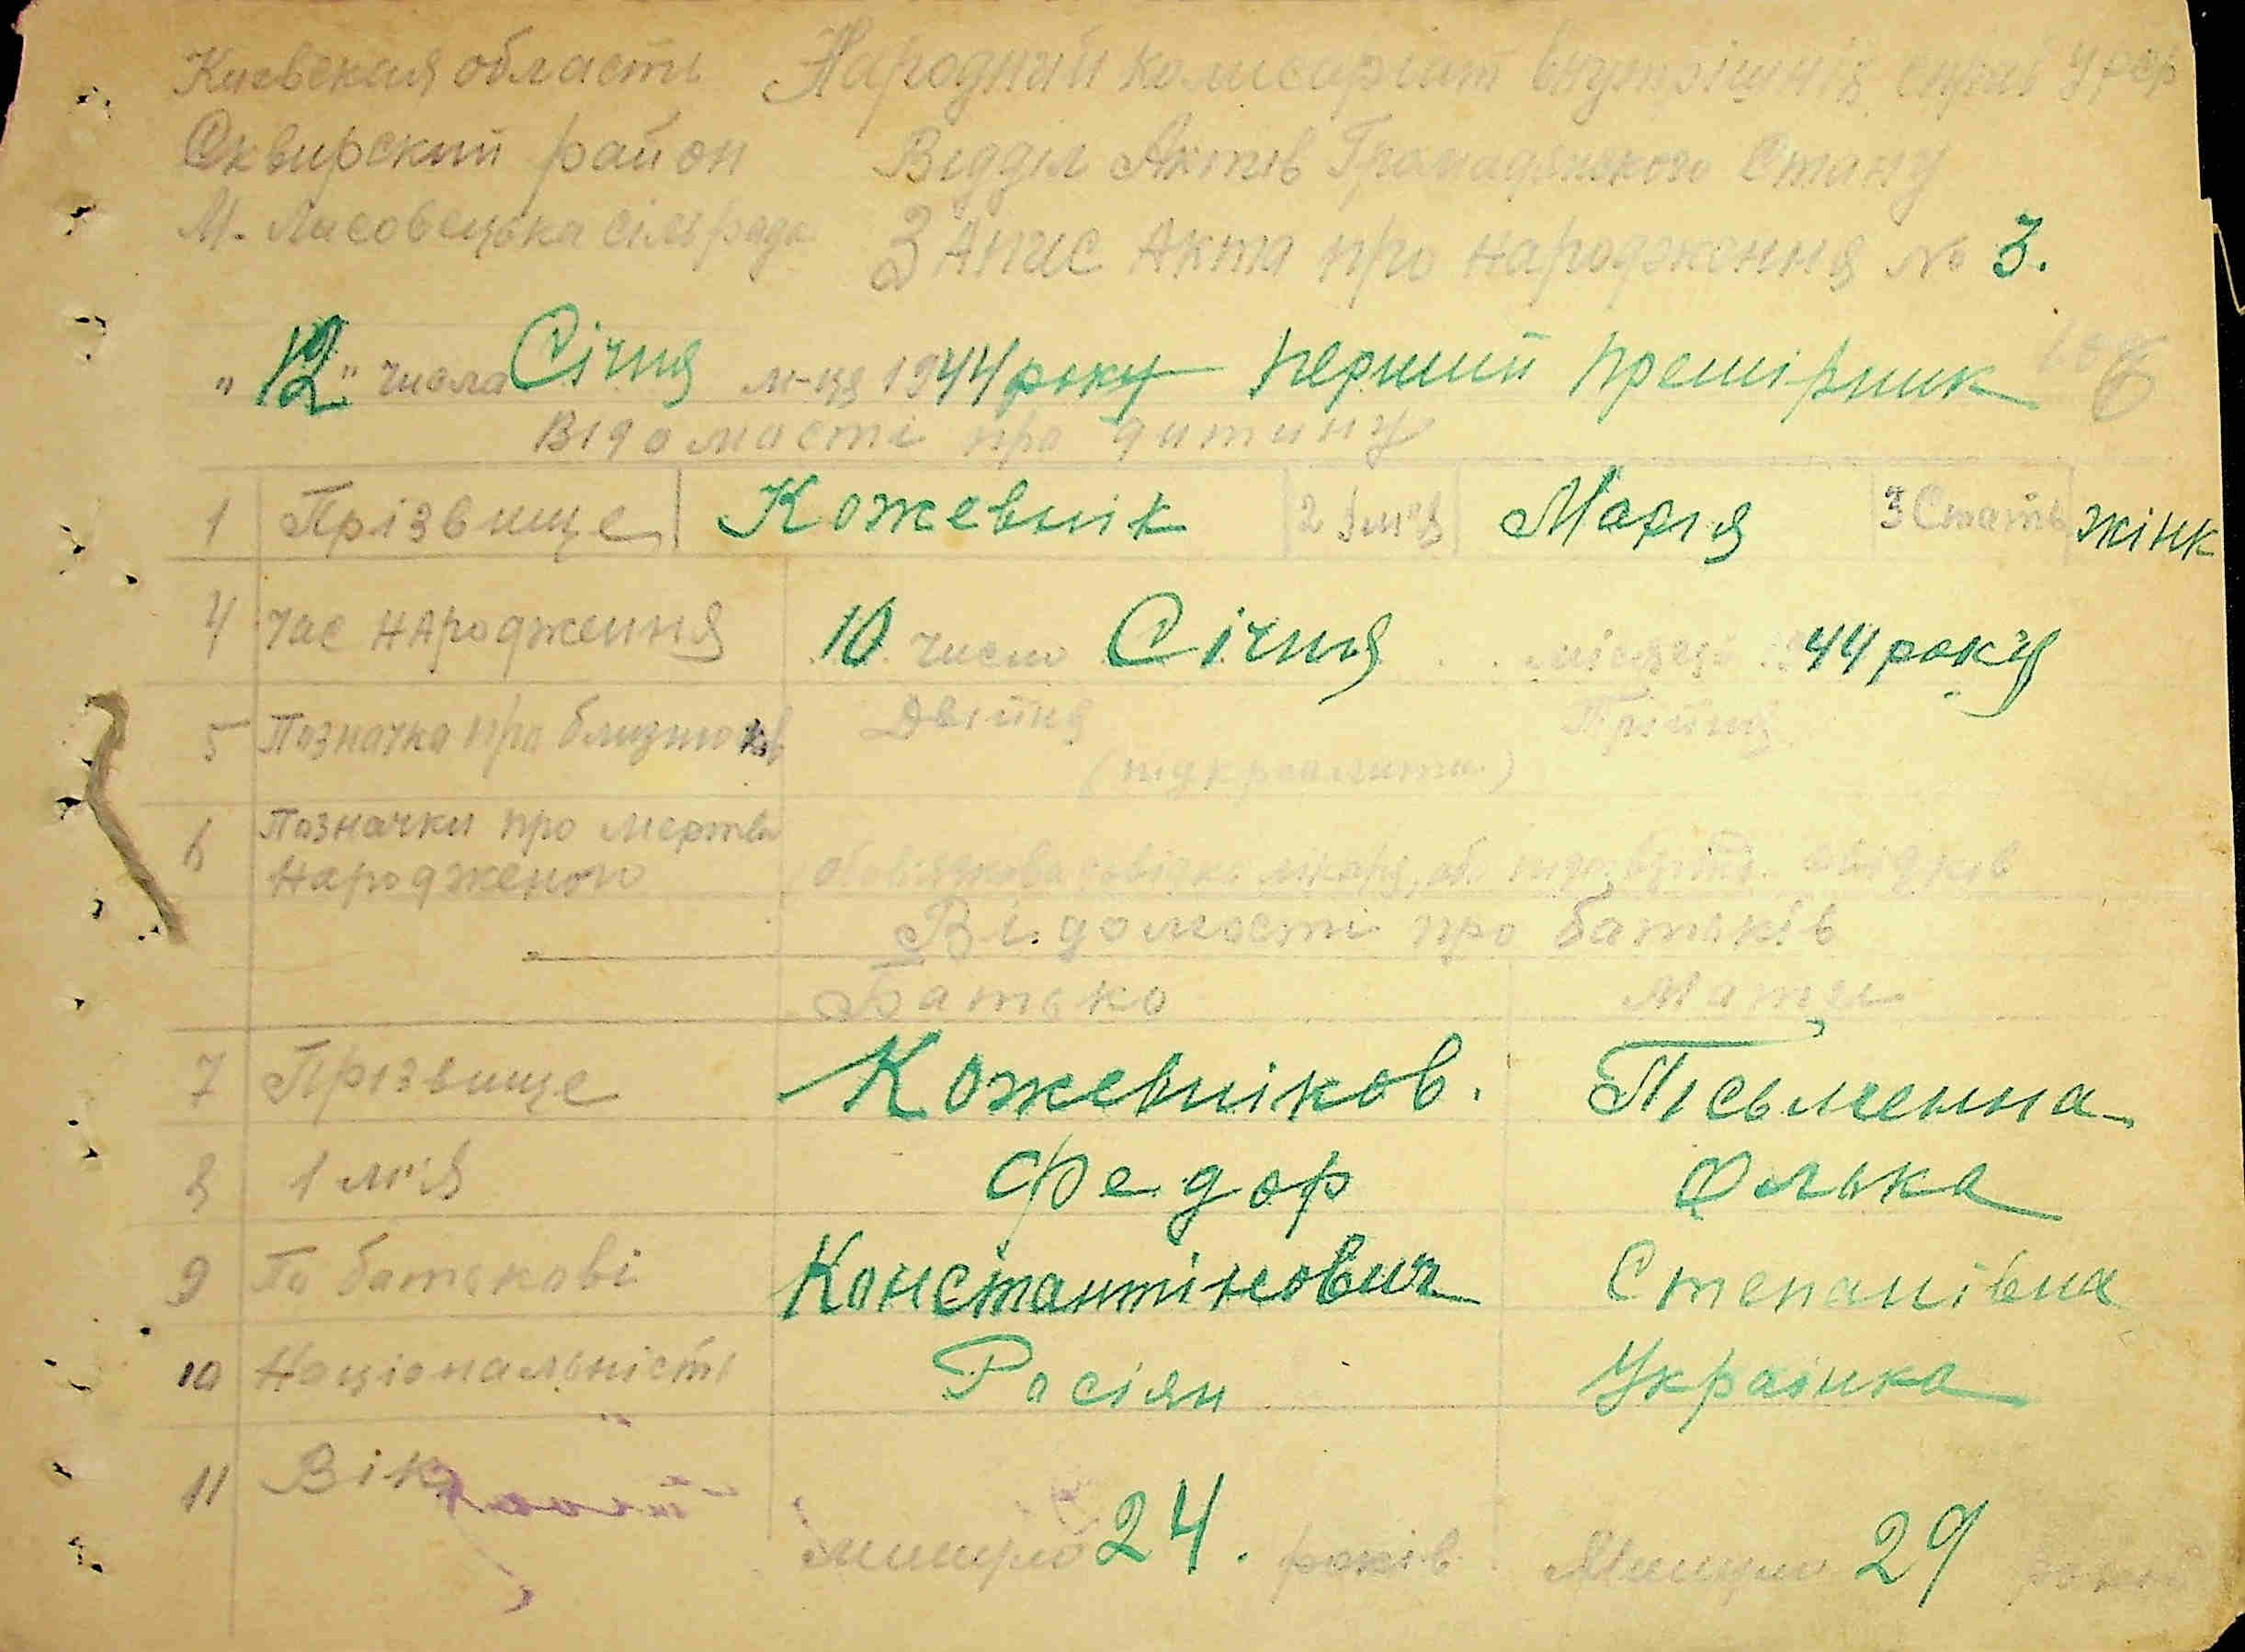 Киевская область Народний комисаріат внутрішніх справ УРСР
Сквирский район Відділ Актів Громадянського Стану
М. Лисовецька сільрада ЗАпис Акта про народження № 3.
"12" числа Січня м-ця 1944 року перший премірник
Відомості про дитину
1 Прізвище Кожевнік 2 Ім'я Марія 3 Стать жінк
4 Час НАродження 10 число Січня місяця 1944 року
5 Позначка про близнюків Двійня Трійня
(підкреслити)
6 Позначки про мертво
Народженого обов'язкова довідка лікаря, або свідків
Відомості про батьків
Батько Мати
7 Прізвище Кожевніков. Пісьменна
8 Ім'я Федор Олька
9 По батькові Констант​інович Степанівна
10 Національність Росіян Українка
11 Вік минуло 24. років Минуло 29 років